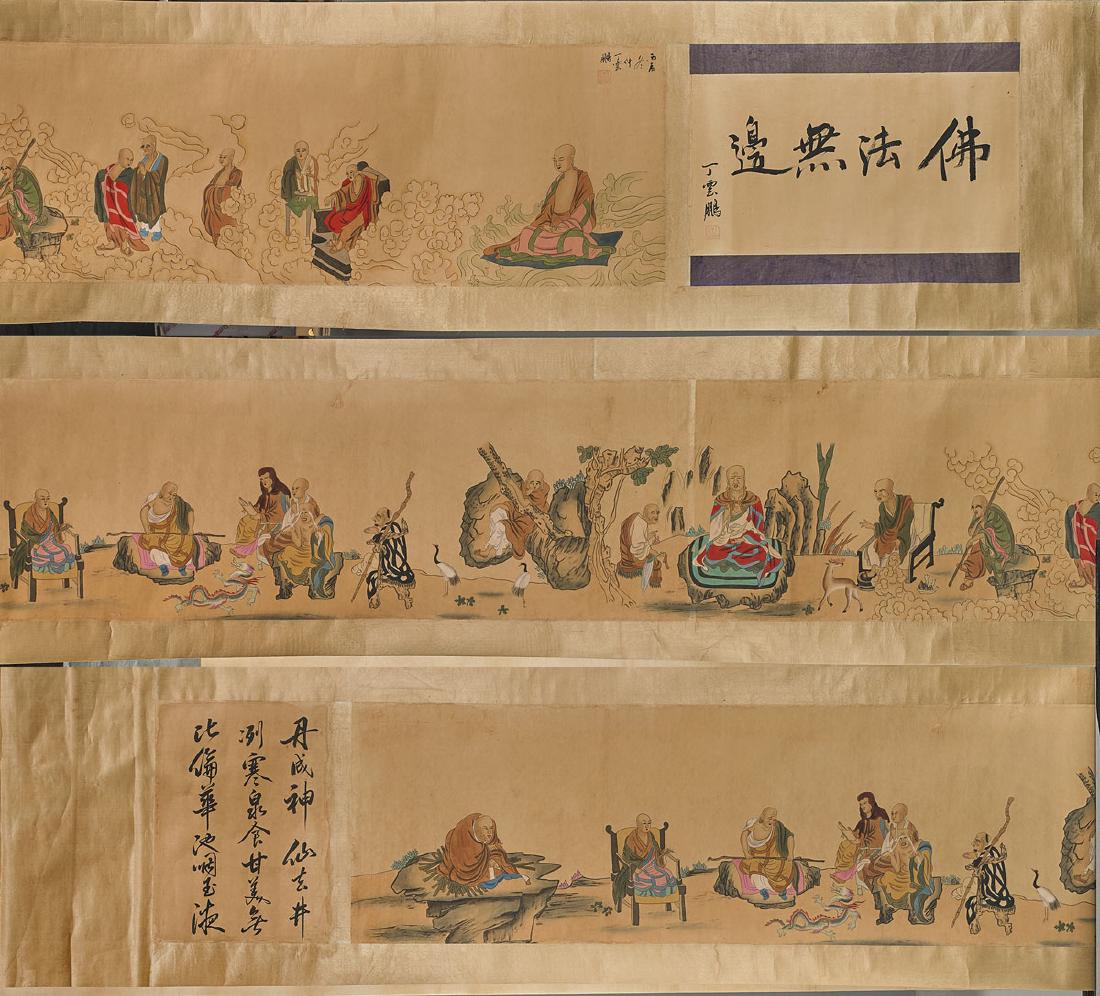 佛法無邊
丁雲鵬
丙辰
冬仲
丁雲
鵬
丹成神仙去井
冽寒泉食甘美無
比倫華池咽玉液